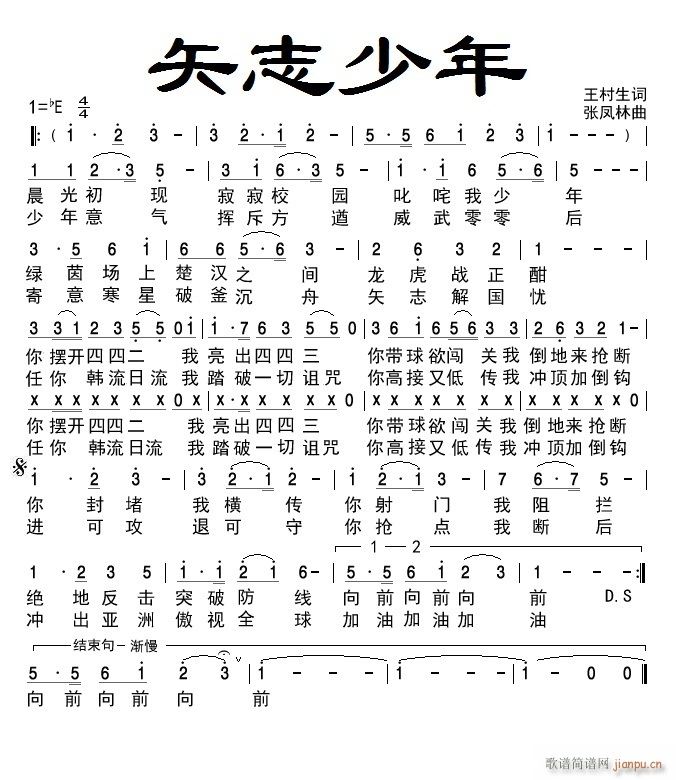 矢志少年
王村生词
张凤林曲
1=♭E 4/4
‖:( i · 2 3 - | 3 · 2 · i 2 - | 5 · 5 6 i 2 · 3 | i - - - ) |
1 1 2 · 3 5 - | 3 · i 6 5 6 - | i · i 6 5 · 6 | 5 - - - |
晨光初 现 寂寂校 园 叱咤我少 年
少年意 气 挥斥方 遒 威武零零 后
3 · 5 6 i | 5 · 6 5 · 6 3 - | 2 6 3 2 | 1 - - - |
绿茵场上楚汉之 间 龙虎战正酣
寄意寒星破釜沉 舟 矢志解国忧
3 3 1 2 2 2 5 5 0 i | i · 7 6 3 5 · 5 5 0 | 3 6 i 6 5 6 3 3 | 2 6 0 2 1 1 |
你摆开四四二 我亮出四四三 你带球欲闯关我倒地来抢断
任你 韩流日流我踏破一切诅咒 你高接又低传我冲顶加倒钩
x x x x x x x 0 x | x · x x x x · x x 0 | x x x x x x x x | x x 0 x x x |
你摆开四四二 我亮出四四三 你带球欲闯关我倒地来抢断
任你 韩流日流我踏破一切诅咒 你高接又低传我冲顶加倒钩
i · 2 3 - | 7 · 5 6 2 · i | i 2 · i 3 - | 7 6 · 7 5 - |
你 封堵 我横 传 你射 门 我阻 拦
进 可攻 退可 守 你抢 点 我断 后
1 2
1 · 2 3 5 | i · i 5 2 i 6 - | 5 · 5 6 i 2 3 | i - - - :‖
绝地反击突破防 线 向前向前向 前 D.S
冲出亚洲傲视全 球 加油加油加 油
结束句－渐慢
5 · 5 6 i 2 3 ∨ | i - - - | i - - - | i - 0 0 ‖
向前向前向 前
歌谱简谱网
jianpu.cn